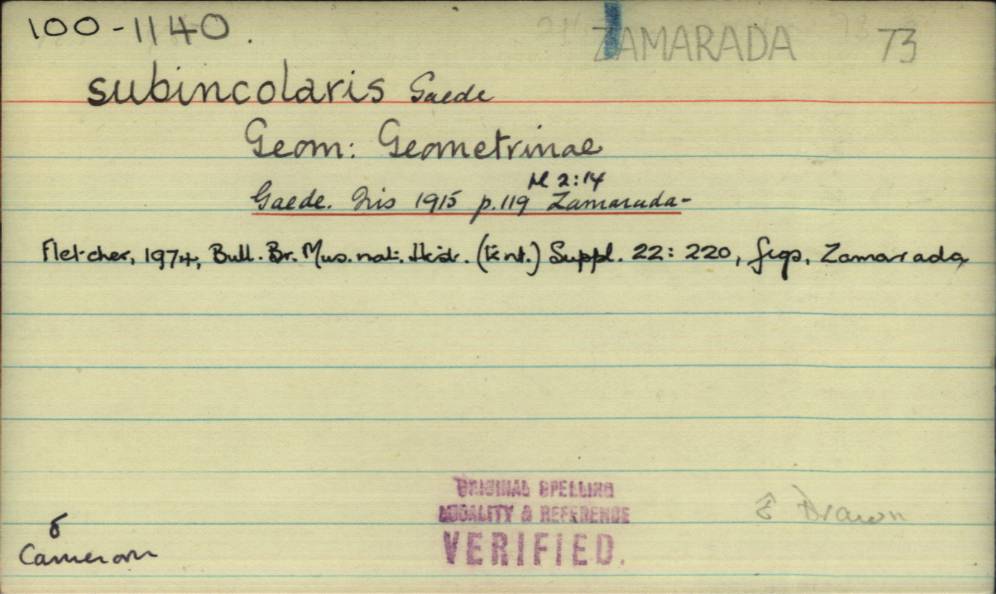 100-1140.
ZAMARADA 73
subincolaris Gaede
Geom: Geometrinae
Gaede. Iris 1915 p.119 pl 2:14 Zamarada-
Fletcher, 1974, Bull. Br. Mus. nat. Hist. (Ent.) Suppl. 22: 220, figs, Zamarada
ORIGINAL SPELLING
LOCALITY & REFERENCE
VERIFIED.
Drawn
Cameroon